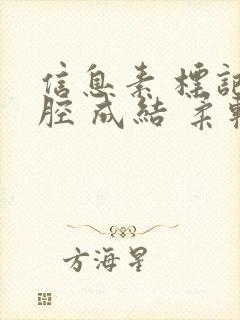 信息素標記
腔成結 柔軟
方海星